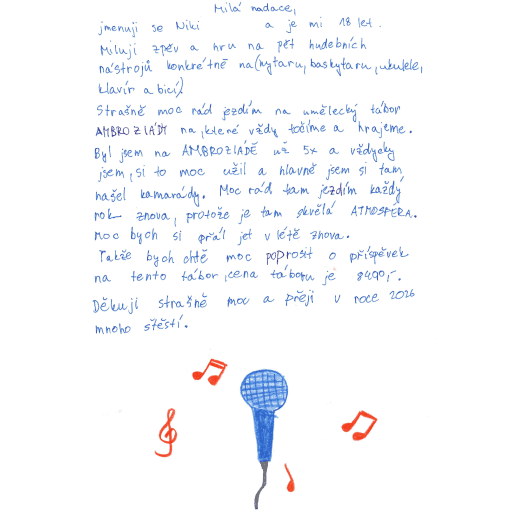 Milá nadace,
jmenuji se Niki a je mi 18 let.
Miluji zpěv a hru na pět hudebních
nástrojů konkrétně na (kytaru, baskytaru, ukulele,
klavír a bicí)
Strašně moc rád jezdím na umělecký tábor
AMBROZIÁDY na, které vždy točíme a hrajeme.
Byl jsem na AMBROZIÁDĚ už 5x a vždycky
jsem, si to moc užil a hlavně jsem si tam
našel kamarády. Moc rád tam jezdím každý
rok znova, protože je tam skvělá ATMOSFÉRA.
Moc bych si přál jet v létě znova.
Takže bych chtě moc poprosit o příspěvek
na tento tábor, cena táboru je 8490,-.
Děkuji strašně moc a přeji v roce 2026
mnoho štěstí.